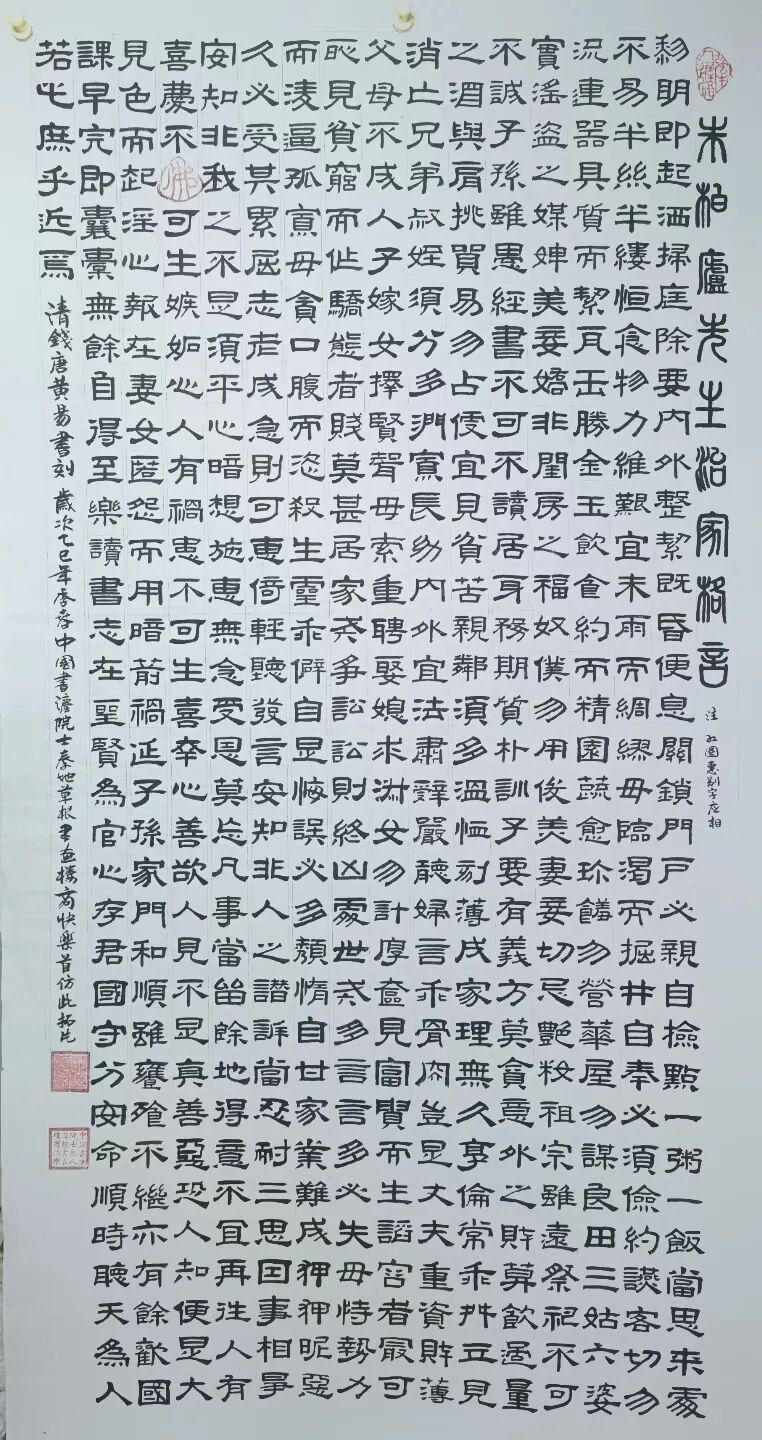 朱柏廬先生治家格言
注 红圈惠别字应相
黎明即起洒掃庭除要内外整絜既昏便息關鎖門戶必親自撿點一粥一飯當思来處
不易半絲半縷恒念物力維艱宜未雨而綢繆毋臨渴而掘井自奉必須儉約讌客切勿
流連器具質而絜瓦缶勝金玉飲食約而精園蔬愈珍饈勿營華屋勿謀良田三姑六婆
實滛盜之媒婢美妾嬌非閨房之福奴僕勿用俊美妻妾切忌艷粧祖宗雖遠祭祀不可
不誠子孫雖愚經書不可不讀居身務期質朴訓子要有義方莫貪意外之財莫飲過量
之酒與肩挑貿易勿占便宜見貧苦親鄰須多溫恤刻薄成家理無久享倫常乖舛立見
消亡兄弟叔姪須分多潤寡長幼内外宜法肅辭嚴聽婦言乖骨肉豈是丈夫重資財薄
父母不成人子嫁女擇賢聲毋索重聘娶媳求淑女勿計厚奩見富貴而生謟容者最可
恥見貧窮而作驕態者賤莫甚居家戒爭訟訟則終凶處世戒多言言多必失毋恃勢力
而凌逼孤寡毋貪口腹而恣殺生靈乖僻自是悔誤必多頹惰自甘家業難成狎狎昵惡
久必受其累屈志老成急則可惠倚輕聽發言安知非人之譖訴當忍耐三思因事相爭
安知非我之不是須平心暗想施惠無念受恩莫忘凡事當留餘地得意不宜再往人有
喜慶不可生嫉妬心人有禍患不可生喜幸心善欲人見不是真善惡恐人知便是大
見色而起淫心報在妻女匿怨而用暗箭禍延子孫家門和順雖饔飧不繼亦有餘歡國
課早完即囊橐無餘自得至樂讀書志在聖賢為官心存君國守分安命順時聽天為人
若此庶乎近焉
清錢唐黃易書刻 歲次乙巳年季春中國書法院士秦地草根書画樓商快樂首仿此拓片